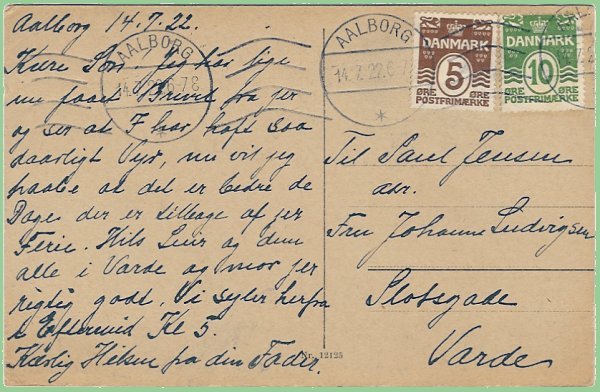 Aalborg 14.7.22.
Kære Søn Jeg har lige
nu faaet Brevet fra jer
og ser at I har haft saa
daarligt Vejr, nu vil jeg
haabe at det er bedre de
Dage der er tilbage af jer
Ferie. Hils Luir og dem
alle i Varde og mor jer
rigtig godt. Vi sejler herfra
i Eftermid Kl 5.
Kærlig Hilsen fra din Fader.
AALBORG
14.7.22.6-7E
AALBORG
14.7.22.6-7
*
DANMARK
5
ØRE ØRE
POSTFRIMÆRKE
DANMARK
10
ØRE ØRE
POSTFRIMÆRKE
Til Paul Jensen
adr.
Fru Johanne Ludvigsen
Slotsgade
Varde
Nr. 12125